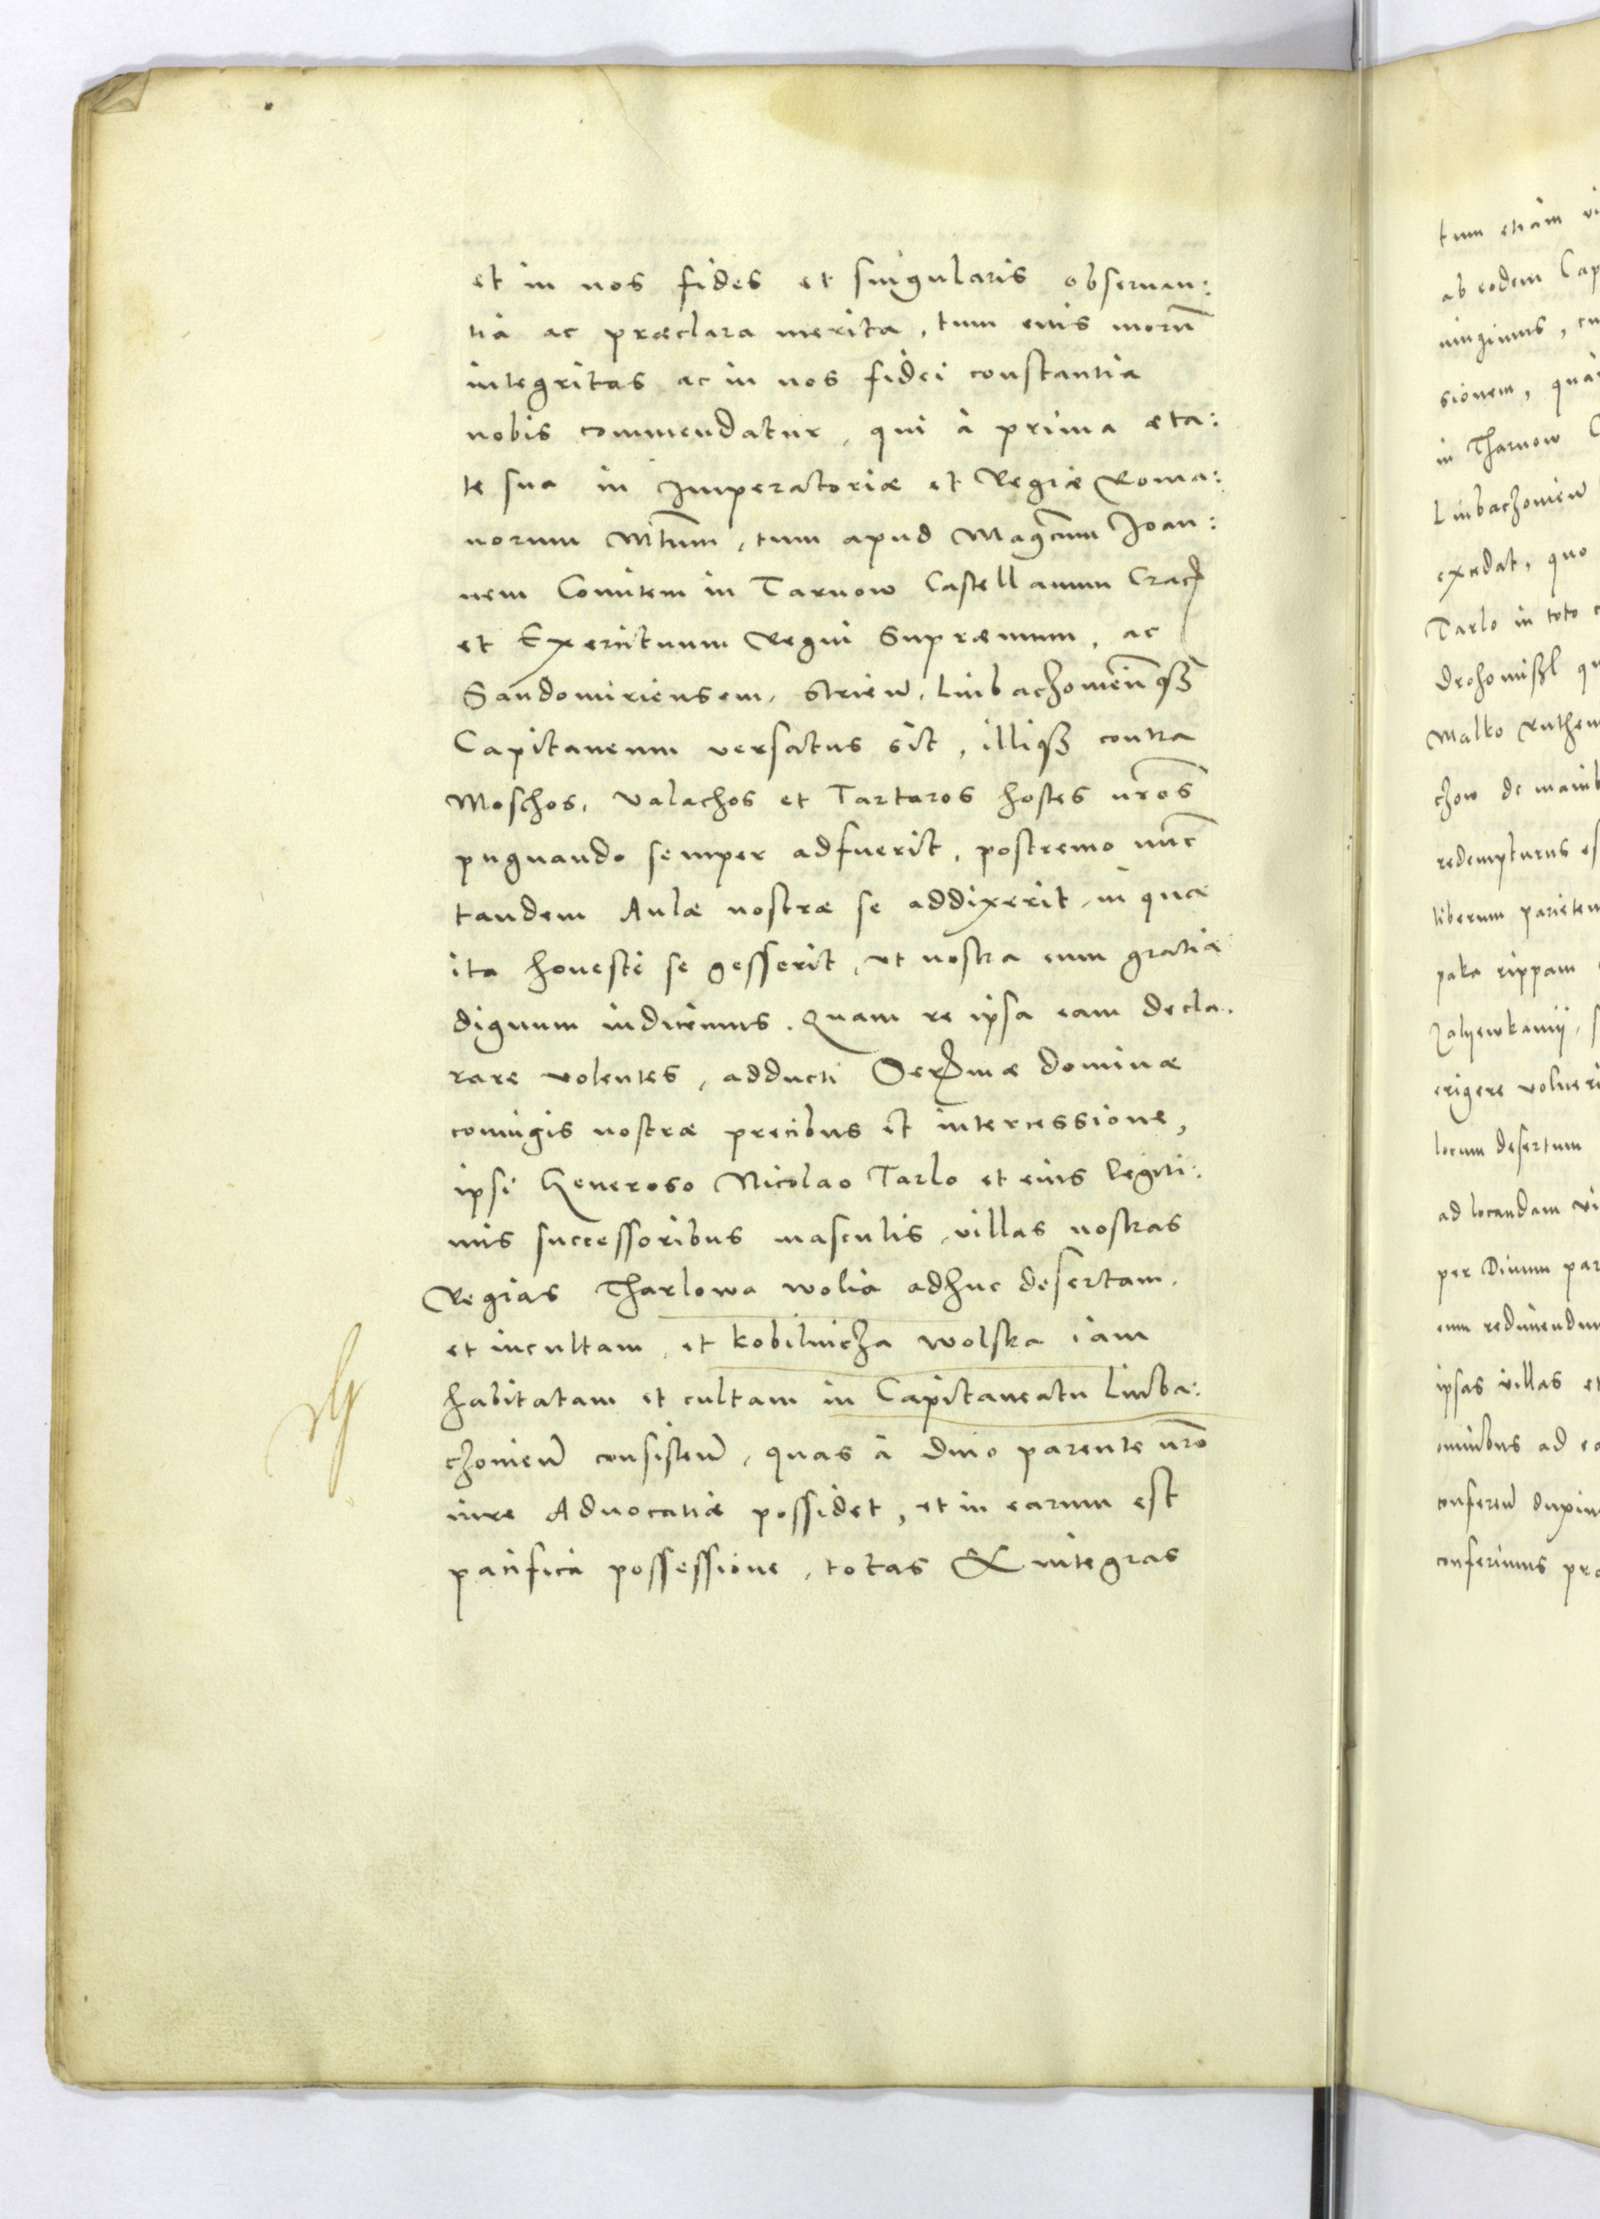 et in nos fides et singularis observan:
tia ac præclara merita, tum eius morū
integritas ac in nos fidei constantia
nobis commendatur, qui à prima æta:
te sua in Imperatoriæ et Regiæ Roma:
norum Mtum, tum apud Magcum Joan:
nem Comitem in Tarnow Castellanum Crac
et Exercituum Regni Supræmum, ac
Sandomiriensem, Strien, Liubachoviēnqз
Capitaneum versatus sit, illiqз contra
Moschos, Valachos et Tartaros hostes nr̄os
pugnando semper adfuerit, postremo nūc
tandem Aulæ nostræ se addixerit, in qua
ita honeste se gesserit, ut nostra eum gratia
dignum iudicemus. Quam re ipsa eam decla.
rare volentes, adducti Serᵐæ dominæ
coniugis nostræ precibus et intercessione,
ipsi Generoso Nicolao Tarlo et eius legiti:
mis successoribus masculis, villas nostras
Regias Tharlowa wolia adhuc desertam,
et incultam, et kobilnicza wolska iam
habitatam et cultam in Capitaneatu Liuba:
czovien consisten, quas à divo parente nr̄o
iure Advocatiæ possidet, et in earum est
pacifica possessione, totas & integras
tum etiam
ab eodem Cap
sionem,
in Tharnow
Liubaczovien
excedat, quo
Tarlo in toto
drohomißl
Malko Ruthen
chow de manib
redempturus
liberum parietem
rippam
erigere volueri
locum desertum
ad locandam vi
per Divum par
eum redimendum
ipsas villas et
omnibus ad ea
conferen
conferimus pro